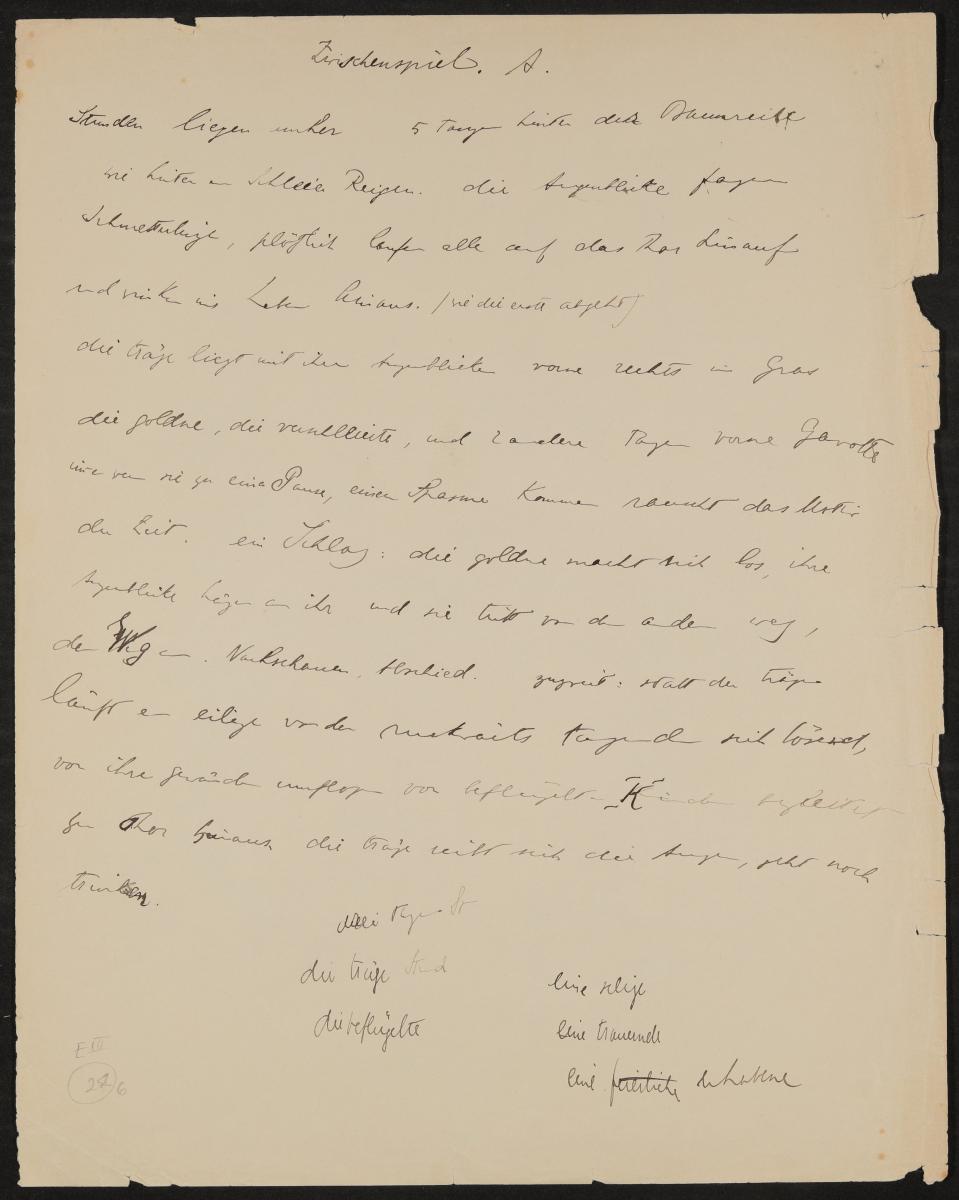 Zwischenspiel. A.
Stunden liegen umher 5 tanzen hinter der Baumreihe
wie hinter en Schleier Reigen. die Augenblicke fagen
Schmetterlinge, plötzlich laufen alle auf das Thor hinauf
und winken ins Leben hinaus. (wie die erste abgeht)
die träge liegt mit ihren Augenblicken vorne rechts im Gras
die goldne, die verschleierte, und 2 andere tanzen vorne Gavotte
wenn sie zu einer Pause, einem kommen rauscht das Motiv
der Zeit. ein Schlag: die goldne macht sich los, ihre
Augenblicke hängen an ihr und sie tritt von den andern weg,
den Weg an. Nachschauen, Abschied. zugreift: statt der trägen
läuft eine eilige von den rückwärts tanzenden sich lösend,
von ihre Gewänder umflogen von beflügelten Kindern begleitet
zum Thor hinaus die träge reibt sich die Augen, geht noch
trinken.
drei tanzen St
die träge Stund
die beflügelte
eine selige
eine trauernde
eine feierliche erhabene
E III
6